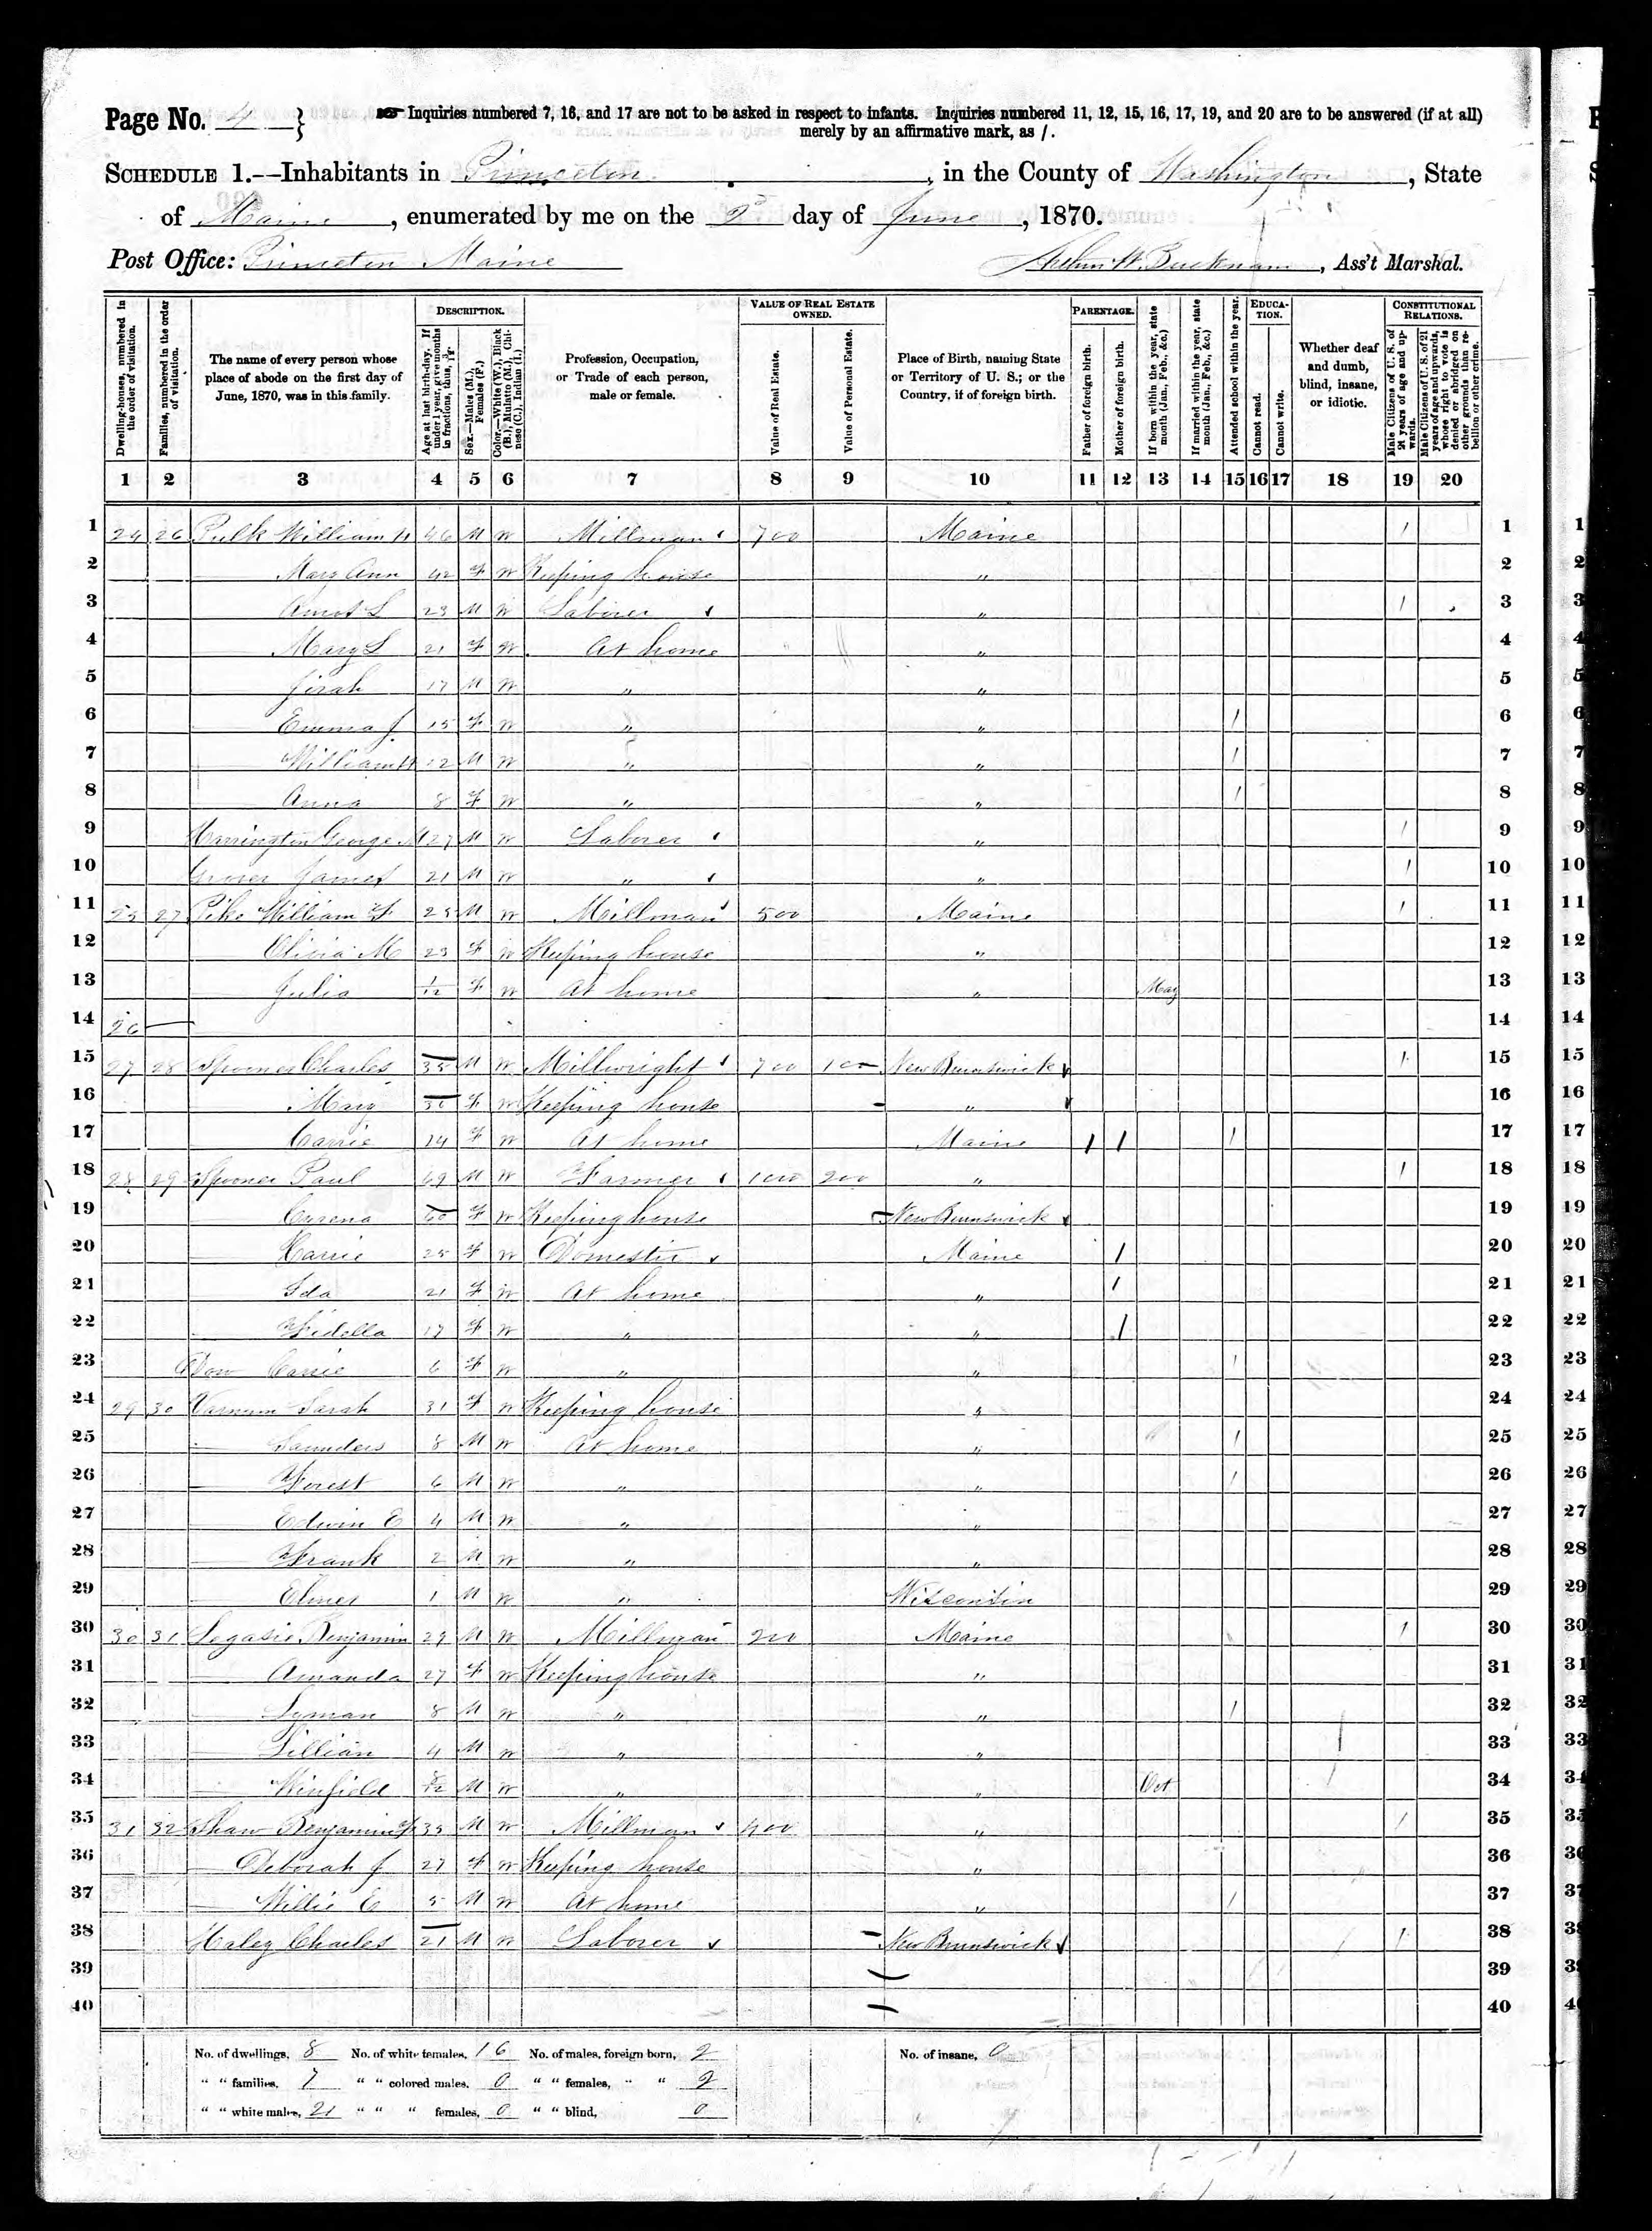 Page No. 4 } ☞ Inquiries numbered 7, 16, and 17 are not to be asked in respect to infants. Inquiries numbered 11, 12, 15, 16, 17, 19, and 20 are to be answered (if at all)
merely by an affirmative mark, as /.
SCHEDULE 1.--Inhabitants in Princeton, in the County of Washington, State
of Maine, enumerated by me on the 2d day of June, 1870.
Post Office: Princeton Maine
H. Bucknam, Ass't Marshal.
Dwelling-houses, numbered in the order of visitation.
Families, numbered in the order of visitation.
The name of every person whose place of abode on the first day of June, 1870, was in this family.
DESCRIPTION.
Age at last birth-day. If under 1 year, give months in fractions, thus, 3/12.
Sex.--Males (M.), Females (F.)
Color.--White (W.), Black (B.), Mulatto (M.), Chinese (C.), Indian (I.)
Profession, Occupation, or Trade of each person, male or female.
VALUE OF REAL ESTATE OWNED.
Value of Real Estate.
Value of Personal Estate.
Place of Birth, naming State or Territory of U. S.; or the Country, if of foreign birth.
PARENTAGE.
Father of foreign birth.
Mother of foreign birth.
If born within the year, state month (Jan., Feb., &c.)
If married within the year, state month (Jan., Feb., &c.)
Attended school within the year.
EDUCATION.
Cannot read.
Cannot write.
Whether deaf and dumb, blind, insane, or idiotic.
CONSTITUTIONAL RELATIONS.
Male Citizens of U. S. of 21 years of age and upwards.
Male Citizens of U. S. of 21 years of age and upwards, whose right to vote is denied or abridged on other grounds than rebellion or other crime.
1 2 3 4 5 6 7 8 9 10 11 12 13 14 15 16 17 18 19 20
1 24 26 Pulk William H 46 M W Millman 700 Maine / 1
2 Mary Ann 42 F W Keeping house " 2
3 Amos L 23 M W Laborer " / 3
4 Mary L 21 F W At home " 4
5 Jirah 17 M W " " 5
6 Emma J 15 F W " " / 6
7 William H 12 M W " " / 7
8 Anna 8 F W " " / 8
9 Harrington George M 27 M W Laborer " / 9
10 James 21 M W " " / 10
11 25 27 Pike William F 25 M W Millman 500 Maine / 11
12 Olivia M 23 F W Keeping house " 12
13 Julia 1/12 F W At home " May 13
14 26 14
15 27 28 Spooner Charles 35 M W Millwright 700 100 New Brunswick / 15
16 Mary F W Keeping house " 16
17 Carrie 14 F W At home Maine / / / 17
18 28 29 Spooner Paul 69 M W Farmer 1000 200 " / 18
19 Cyrena 60 F W Keeping house New Brunswick 19
20 Carrie 25 F W Domestic Maine / 20
21 Ida 21 F W At home " / 21
22 Fidella 17 F W " " / 22
23 Dow Carrie 6 F W " " / 23
24 29 30 Varnum Sarah 31 F W Keeping house " 24
25 Saunders 8 M W At home " / 25
26 Forest 6 M W " " / 26
27 Edwin E 4 M W " " 27
28 Frank 2 M W " " 28
29 Elmer 1 M W " Wisconsin 29
30 30 31 Legasie Benjamin 29 M W Millman 200 Maine / 30
31 Amanda 27 F W Keeping house " 31
32 Lyman 8 M W " " / 32
33 Lillian 4 M W " " 33
34 Winfield 8/12 M W " " Oct 34
35 31 32 Shaw Benjamin F 35 M W Millman 400 " / 35
36 Deborah J 27 F W Keeping house " 36
37 Willie E 5 M W At home " / 37
38 Haley Charles 21 M W Laborer New Brunswick / 38
39 39
40 40
No. of dwellings, 8 No. of white females, 16 No. of males, foreign born, 2 No. of insane, 0
" " families, 7 " " colored males, 0 " " females, " " 2
" " white males, 21 " " " females, 0 " " blind, 0